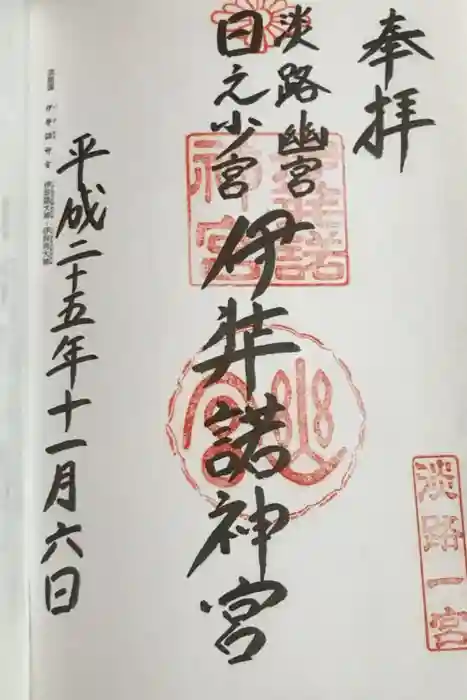 奉拝
淡路幽宮
日之少宮
伊弉諾神宮
平成二十五年十一月六日
伊弉諾神宮
幽宮
淡路一宮